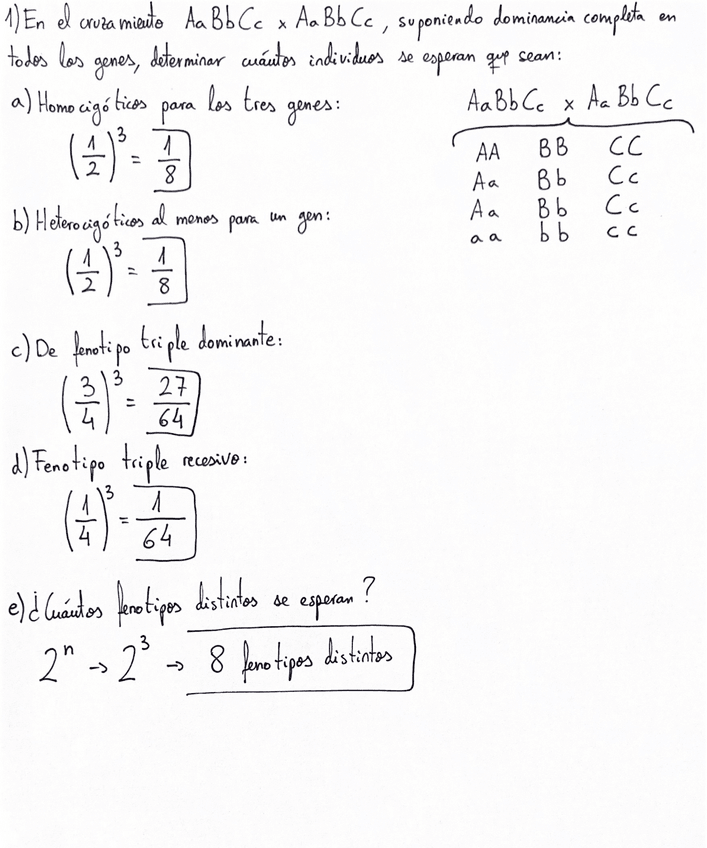 1) En el cruzamiento AaBbCc x AaBbCc, suponiendo dominancia completa en
todos los genes, determinar cuántos individuos se esperan que sean:
a) Homocigóticos para los tres genes:
(1/2)^3 = 1/8
AaBbCc x AaBbCc
AA BB CC
Aa Bb Cc
Aa Bb Cc
aa bb cc
b) Heterocigóticos al menos para un gen:
(1/2)^3 = 1/8
c) De fenotipo triple dominante:
(3/4)^3 = 27/64
d) Fenotipo triple recesivo:
(1/4)^3 = 1/64
e) ¿Cuántos fenotipos distintos se esperan?
2^n → 2^3 → 8 fenotipos distintos